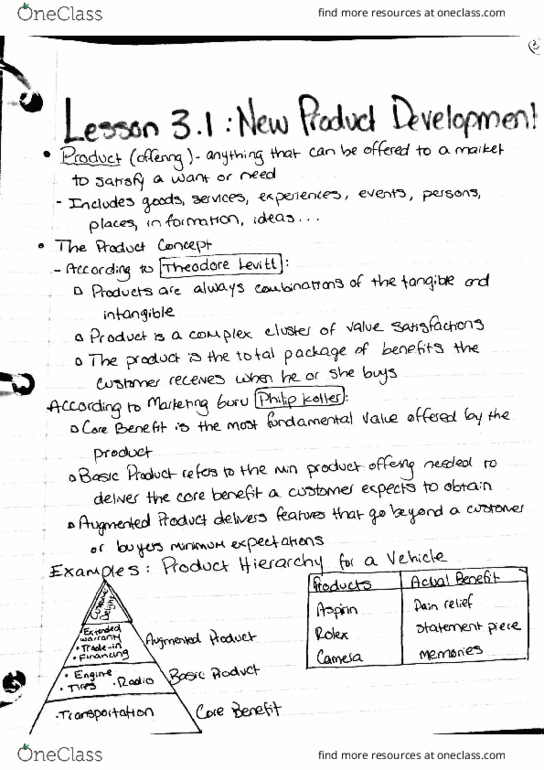 OneClass
find more resources at oneclass.com
Lesson 3.1 : New Product Development
• Product (offering) - anything that can be offered to a market
to satisfy a want or need
- Includes goods, services, experiences, events, persons,
places, information, ideas...
• The Product Concept
- According to Theodore Levitt:
Products are always combinations of the tangible and
intangible
Product is a complex cluster of value satisfactions
The product is the total package of benefits the
customer receives when he or she buys
According to Marketing Guru Philip Kotler:
Core Benefit is the most fundamental value offered by the
product
Basic Product refers to the min product offering needed to
deliver the core benefit a customer expects to obtain
Augmented Product delivers features that go beyond a customer
or buyers minimum expectations
Examples: Product Hierarchy for a Vehicle
Products Actual Benefit
Aspirin Pain relief
Rolex Statement piece
Camera memories
• Extended
warranty
• Trade-in
• Financing
Augmented Product
• Engine
• Tires • Radio
Basic Product
• Transportation
Core Benefit
OneClass
find more resources at oneclass.com